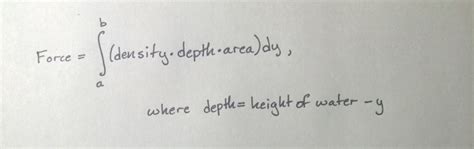 Force = ∫_a^b (density · depth · area) dy,
where depth = height of water - y